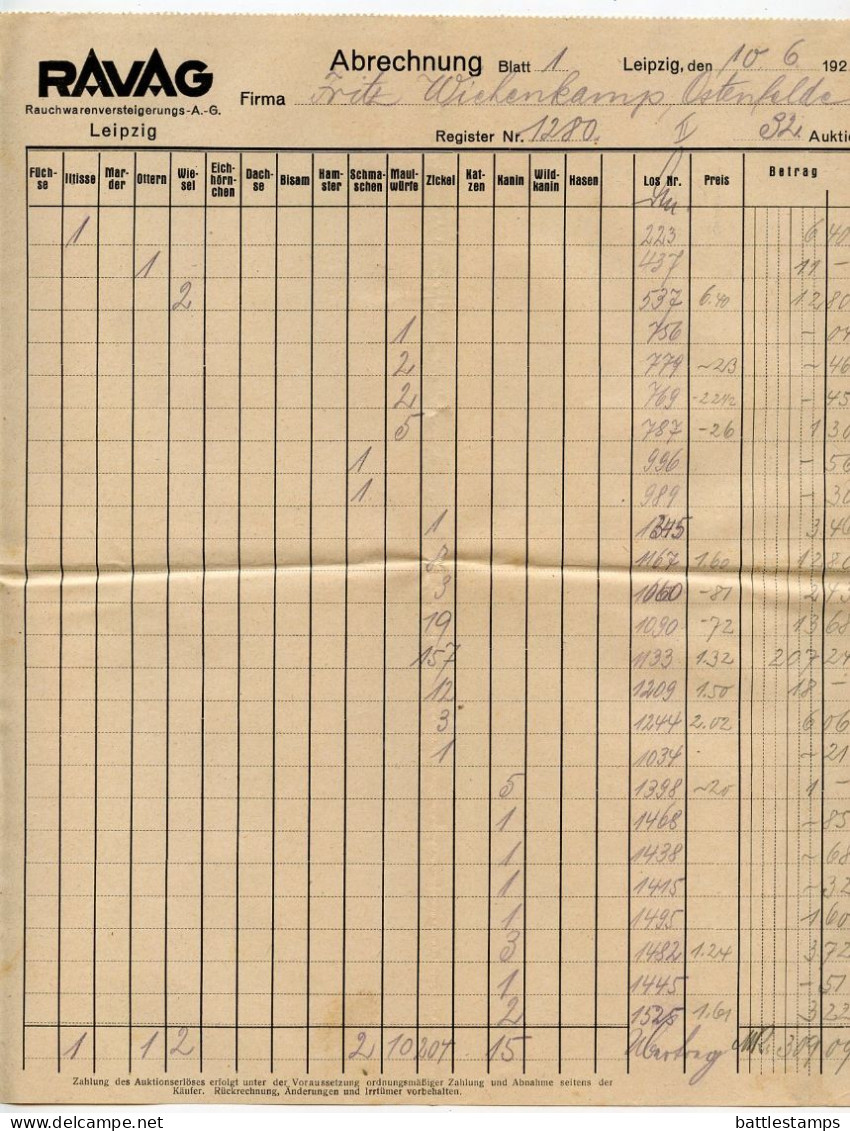 RAVAG
Rauchwarenversteigerungs-A.-G.
Leipzig
Abrechnung Blatt 1 Leipzig, den 10 6 192
Firma Fritz Wiehenkamp, Ostenfelde
Register Nr. 1280 II 32. Auktio
Füch-se Iltisse Mar-der Ottern Wie-sel Eich-hörn-chen Dach-se Bisam Ham-ster Schma-schen Maul-würfe Zickel Kat-zen Kanin Wild-kanin Hasen Los Nr. Preis Betrag
1 223 6 40
1 437 11 -
2 537 6.40 12 80
1 756 - 04
2 779 -23 - 46
2 769 -22½ - 45
5 787 -26 1 30
1 996 - 56
1 989 - 30
1 1345 3 46
8 1167 1.60 12 80
3 1060 -81 2 43
19 1090 -72 13 68
157 1133 1.32 207 24
12 1209 1.50 18 -
3 1244 2.02 6 06
1 1034 - 21
5 1398 -20 1 -
1 1468 - 85
1 1438 - 68
1 1415 - 32
1 1495 1 60
3 1482 1.24 3 72
1 1445 - 51
2 1525 1.61 3 22
1 1 2 2 10 204 15 Übertrag 309 09
Zahlung des Auktionserlöses erfolgt unter der Voraussetzung ordnungsmäßiger Zahlung und Abnahme seitens der
Käufer. Rückrechnung, Änderungen und Irrtümer vorbehalten.
www.delcampe.net
battlestamps